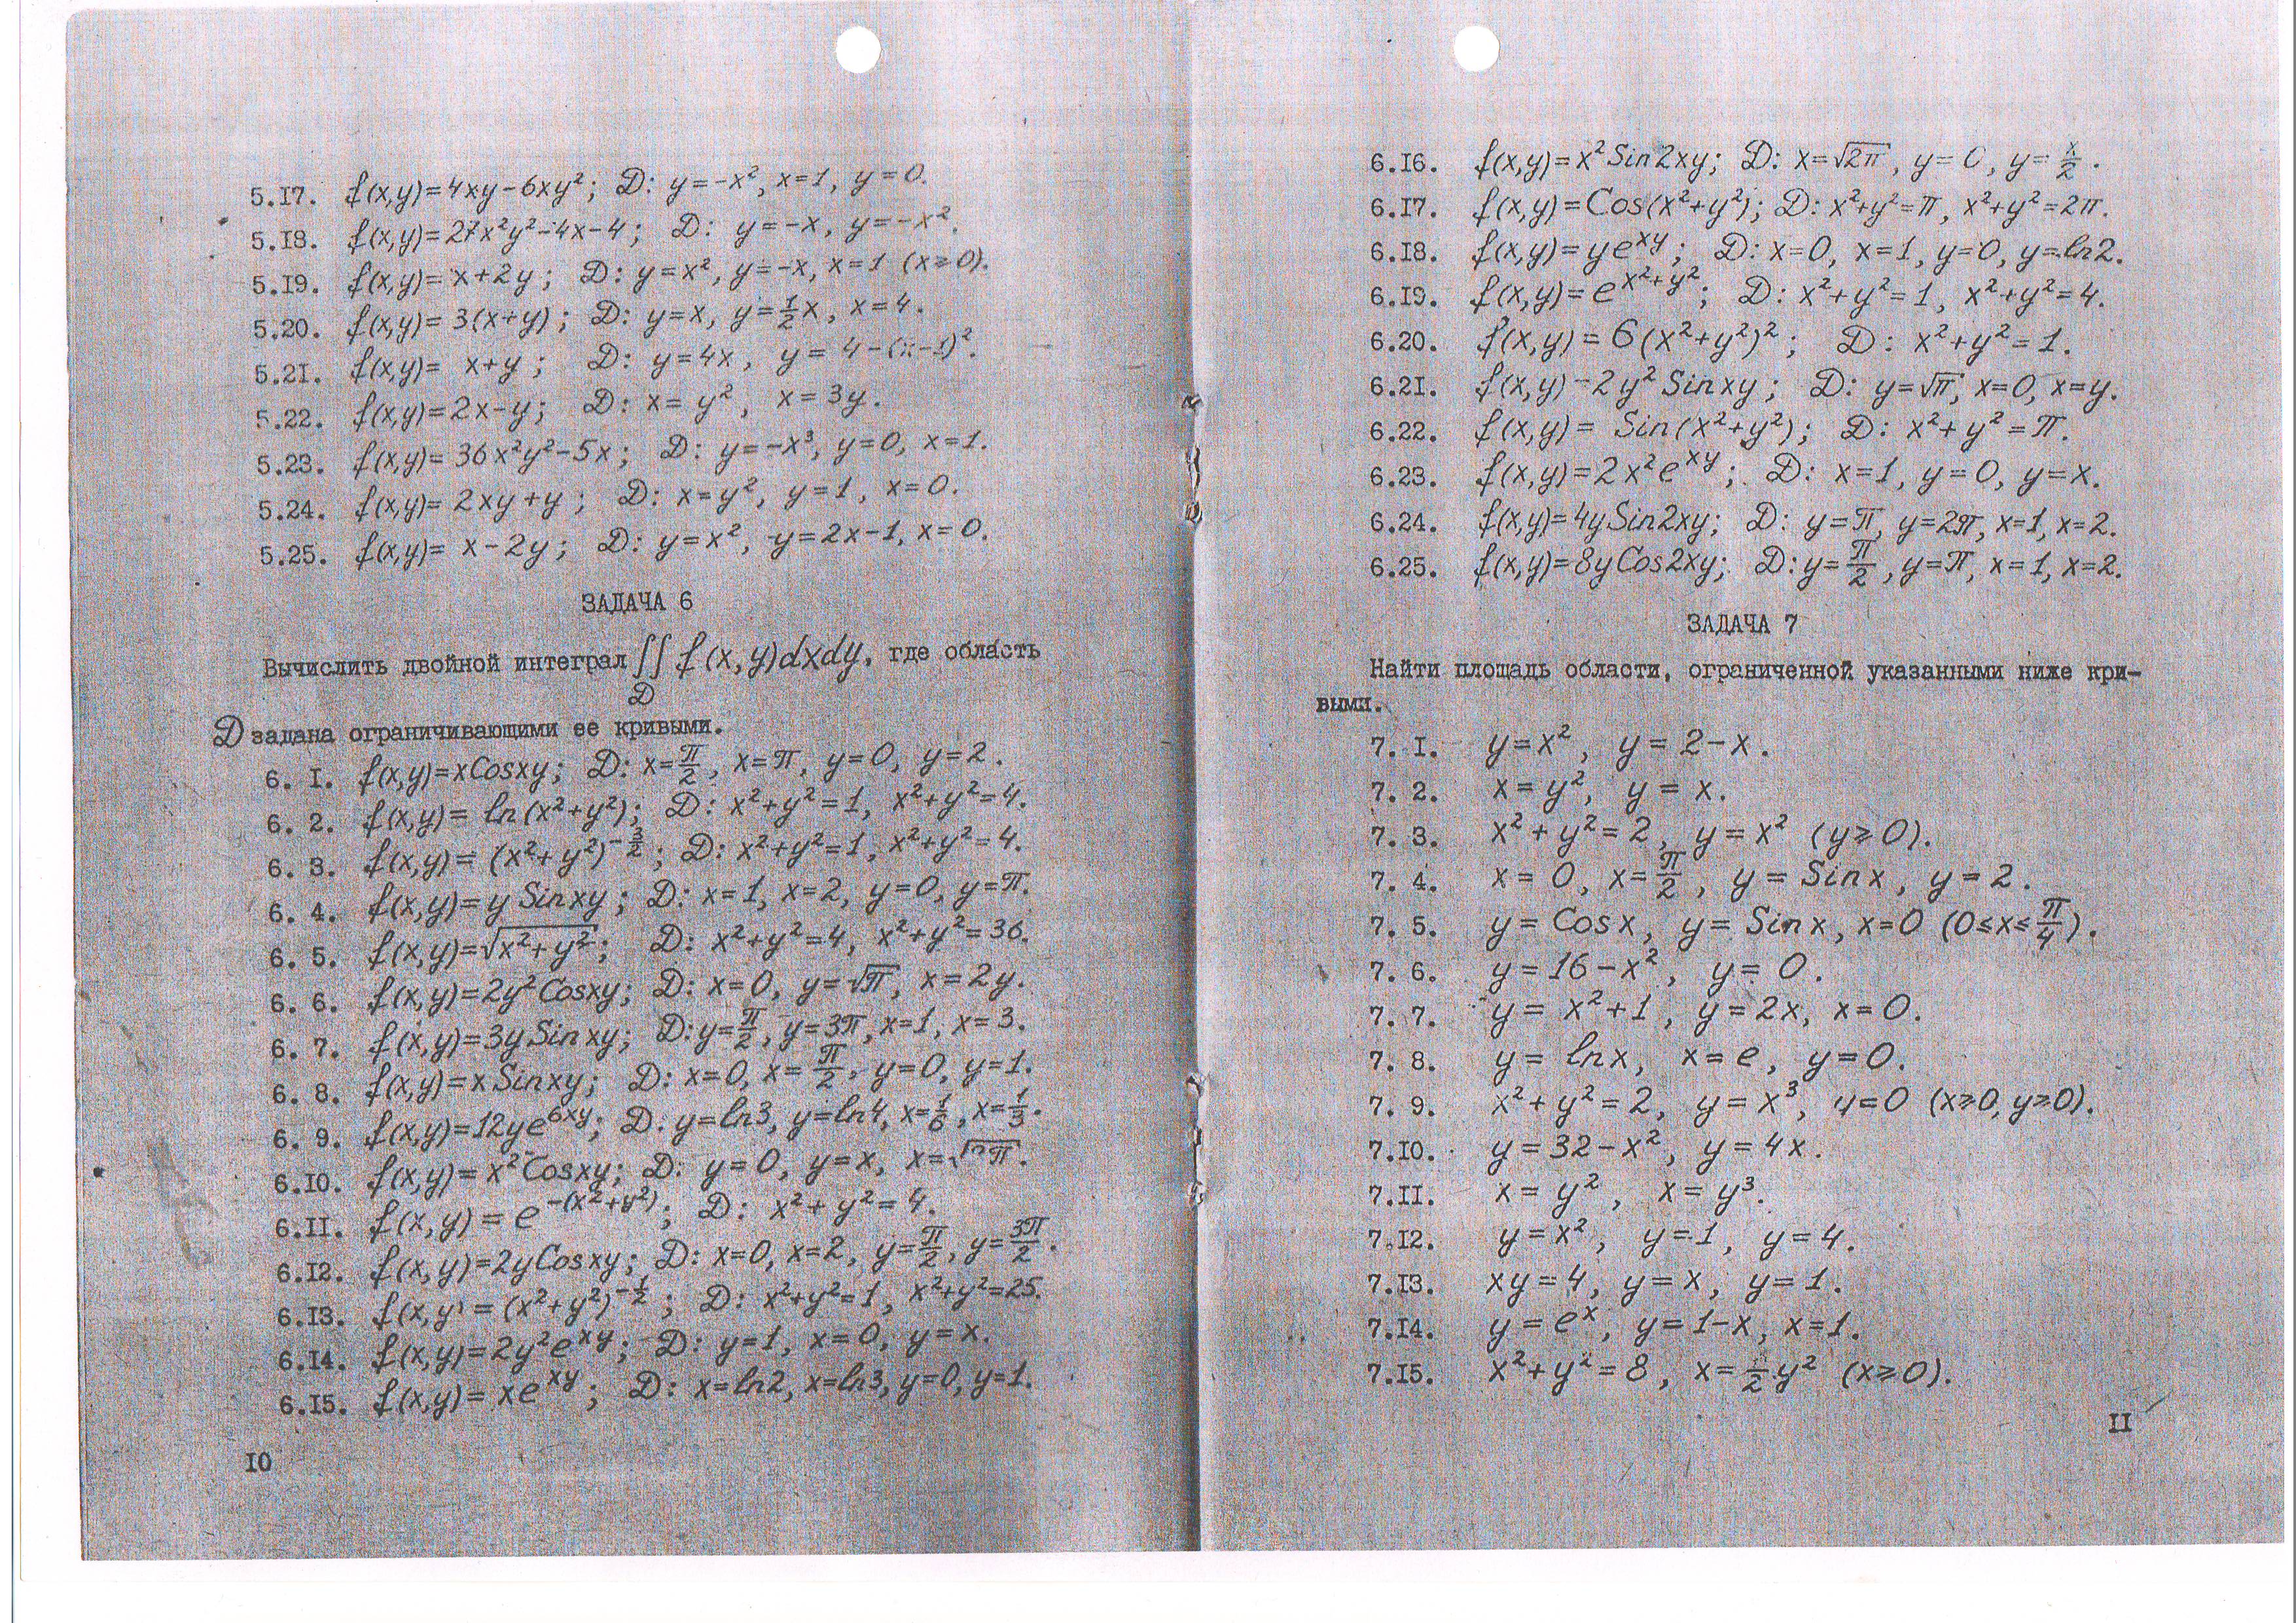 5.17. f(x,y)=4xy-6xy²; D: y=-x², x=1, y=0.
5.18. f(x,y)=27x²y²-4x-4; D: y=-x, y=-x².
5.19. f(x,y)=x+2y; D: y=x², y=-x, x=1 (x≥0).
5.20. f(x,y)=3(x+y); D: y=x, y=½x, x=4.
5.21. f(x,y)= x+y; D: y=4x, y=4-(x-1)².
5.22. f(x,y)=2x-y; D: x=y², x=3y.
5.23. f(x,y)=36x²y²-5x; D: y=-x³, y=0, x=1.
5.24. f(x,y)=2xy+y; D: x=y², y=1, x=0.
5.25. f(x,y)= x-2y; D: y=x², y=2x-1, x=0.
ЗАДАЧА 6
Вычислить двойной интеграл ∬ f(x,y)dxdy, где область
D
D задана ограничивающими ее кривыми.
6. 1. f(x,y)=xCosxy; D: x=π/2, x=π, y=0, y=2.
6. 2. f(x,y)= ln(x²+y²); D: x²+y²=1, x²+y²=4.
6. 3. f(x,y)= (x²+y²)^(-3/2); D: x²+y²=1, x²+y²=4.
6. 4. f(x,y)=y Sinxy; D: x=1, x=2, y=0, y=π.
6. 5. f(x,y)=√(x²+y²); D: x²+y²=4, x²+y²=36.
6. 6. f(x,y)=2y²Cosxy; D: x=0, y=√π, x=2y.
6. 7. f(x,y)=3ySinxy; D: y=π/2, y=3π, x=1, x=3.
6. 8. f(x,y)=xSinxy; D: x=0, x=π/2, y=0, y=1.
6. 9. f(x,y)=12ye^(6xy); D: y=ln3, y=ln4, x=1/6, x=1/3.
6.10. f(x,y)=x²Cosxy; D: y=0, y=x, x=√π.
6.11. f(x,y)=e^(-(x²+y²)); D: x²+y²=4.
6.12. f(x,y)=2yCosxy; D: x=0, x=2, y=π/2, y=3π/2.
6.13. f(x,y)=(x²+y²)^(-1/2); D: x²+y²=1, x²+y²=25.
6.14. f(x,y)=2y²e^(xy); D: y=1, x=0, y=x.
6.15. f(x,y)=xe^(xy); D: x=ln2, x=ln3, y=0, y=1.
10
6.16. f(x,y)=x²Sin2xy; D: x=√2π, y=0, y=x/2.
6.17. f(x,y)=Cos(x²+y²); D: x²+y²=π, x²+y²=2π.
6.18. f(x,y)=ye^(xy); D: x=0, x=1, y=0, y=ln2.
6.19. f(x,y)=e^(x²+y²); D: x²+y²=1, x²+y²=4.
6.20. f(x,y)=6(x²+y²)²; D: x²+y²=1.
6.21. f(x,y)=2y²Sinxy; D: y=√π, x=0, x=y.
6.22. f(x,y)= Sin(x²+y²); D: x²+y²=π.
6.23. f(x,y)=2x²e^(xy); D: x=1, y=0, y=x.
6.24. f(x,y)=4ySin2xy; D: y=π, y=2π, x=1, x=2.
6.25. f(x,y)=8yCos2xy; D: y=π/2, y=π, x=1, x=2.
ЗАДАЧА 7
Найти площадь области, ограниченной указанными ниже кри-
выми.
7. 1. y=x², y=2-x.
7. 2. x=y², y=x.
7. 3. x²+y²=2, y=x² (y≥0).
7. 4. x=0, x=π/2, y=Sinx, y=2.
7. 5. y=Cosx, y=Sinx, x=0 (0≤x≤π/4).
7. 6. y=16-x², y=0.
7. 7. y=x²+1, y=2x, x=0.
7. 8. y=lnx, x=e, y=0.
7. 9. x²+y²=2, y=x³, y=0 (x≥0, y≥0).
7.10. y=32-x², y=4x.
7.11. x=y², x=y³.
7.12. y=x², y=1, y=4.
7.13. xy=4, y=x, y=1.
7.14. y=e^x, y=1-x, x=1.
7.15. x²+y²=8, x=½y² (x≥0).
11